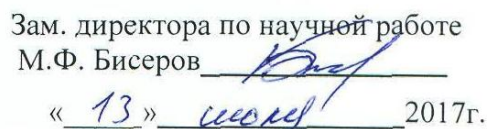 Зам. директора по научной работе
М.Ф. Бисеров
« 13 » июля 2017г.